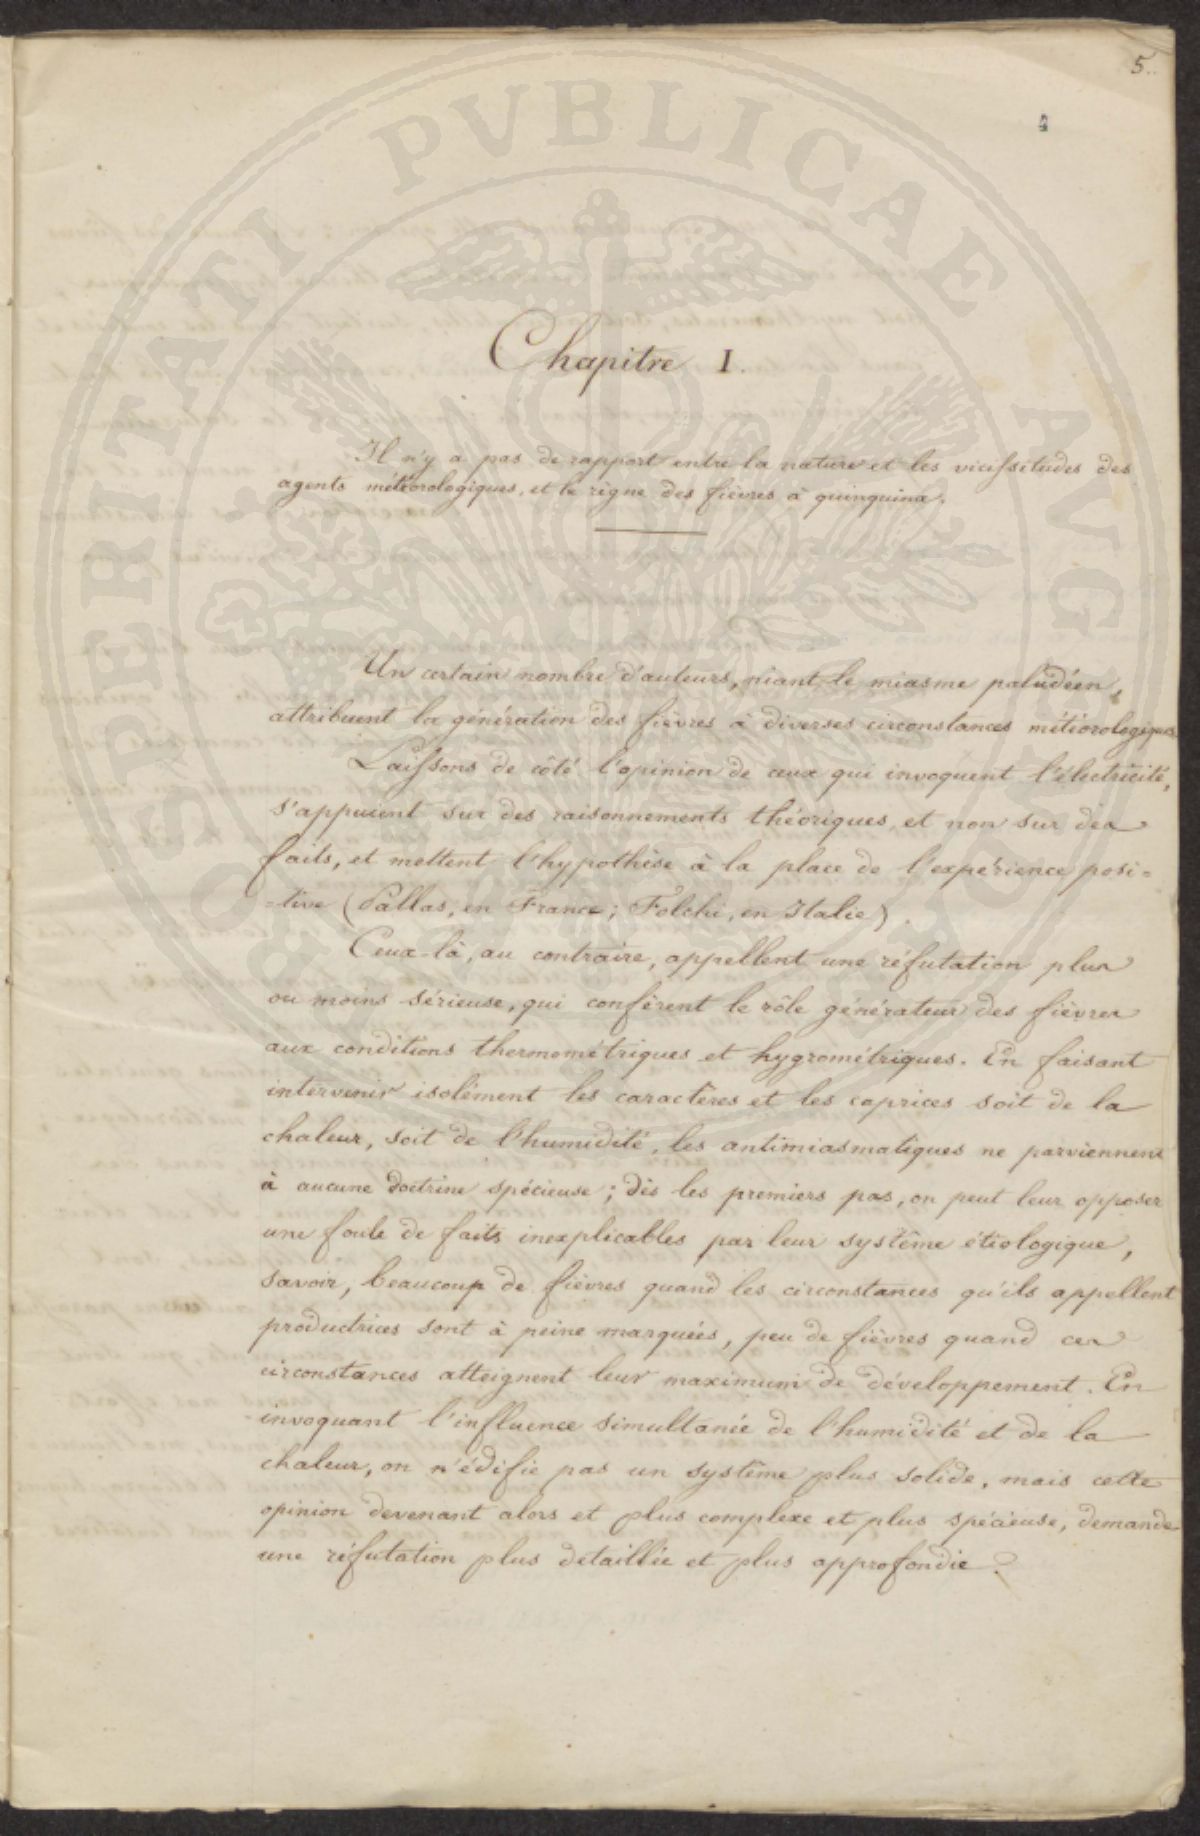 5.
4
PROSPERITATI PVBLICAE AVGENDAE
Chapitre I.
Il n'y a pas de rapport entre la nature et les vicissitudes des
agents météorologiques, et le règne des fièvres à quinquina.
Un certain nombre d'auteurs, niant le miasme paludéen,
attribuent la génération des fièvres à diverses circonstances météorologiques.
Laissons de côté l'opinion de ceux qui invoquent l'électricité,
s'appuient sur des raisonnements théoriques, et non sur des
faits, et mettent l'hypothèse à la place de l'expérience posi=
=tive (Pallas, en France; Folchi, en Italie).
Ceux-là, au contraire, appellent une réfutation plus
ou moins sérieuse, qui confèrent le rôle générateur des fièvres
aux conditions thermométriques et hygrométriques. En faisant
intervenir isolément les caractères et les caprices soit de la
chaleur, soit de l'humidité, les antimiasmatiques ne parviennent
à aucune doctrine spécieuse; dès les premiers pas, on peut leur opposer
une foule de faits inexplicables par leur système étiologique,
savoir, beaucoup de fièvres quand les circonstances qu'ils appellent
productrices sont à peine marquées, peu de fièvres quand ces
circonstances atteignent leur maximum de développement. En
invoquant l'influence simultanée de l'humidité et de la
chaleur, on n'édifie pas un système plus solide, mais cette
opinion devenant alors et plus complexe et plus spécieuse, demande
une réfutation plus detaillée et plus approfondie.